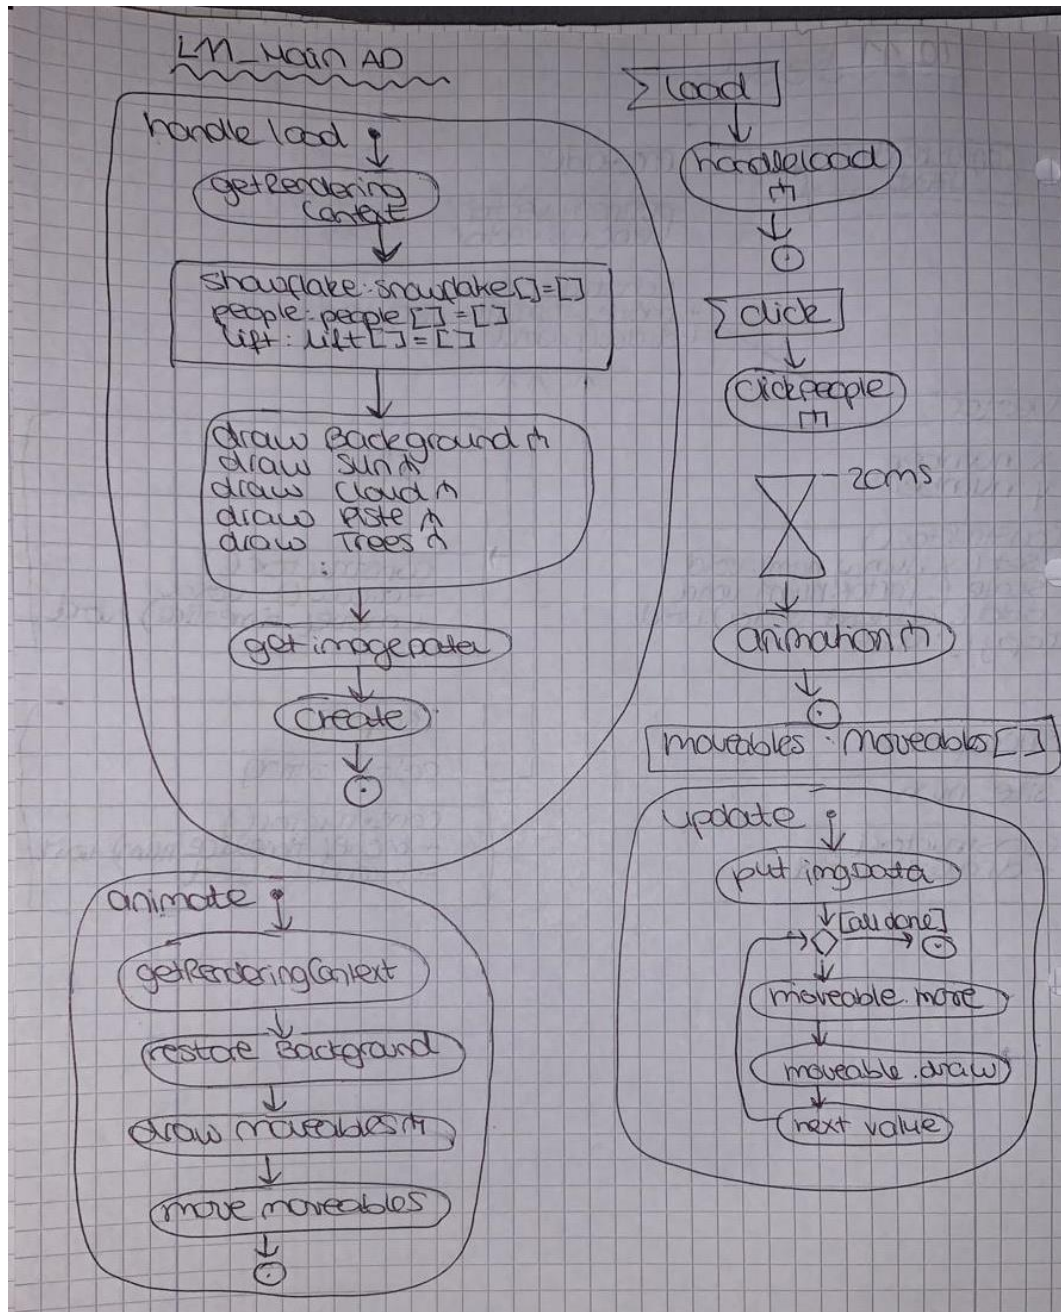 LM_Main AD
handle load
getRendering
Context
snowflake: snowflake[]=[]
people: people[]=[]
lift: lift[]=[]
draw Background
draw Sun
draw Cloud
draw Piste
draw Trees
:
get imageData
create
animate
getRenderingContext
restore Background
draw moveables
move moveables
load
handleload
click
clickpeople
20ms
animation
moveables: Moveables[]
update
put imgData
[all done]
moveable.move
moveable.draw
next value